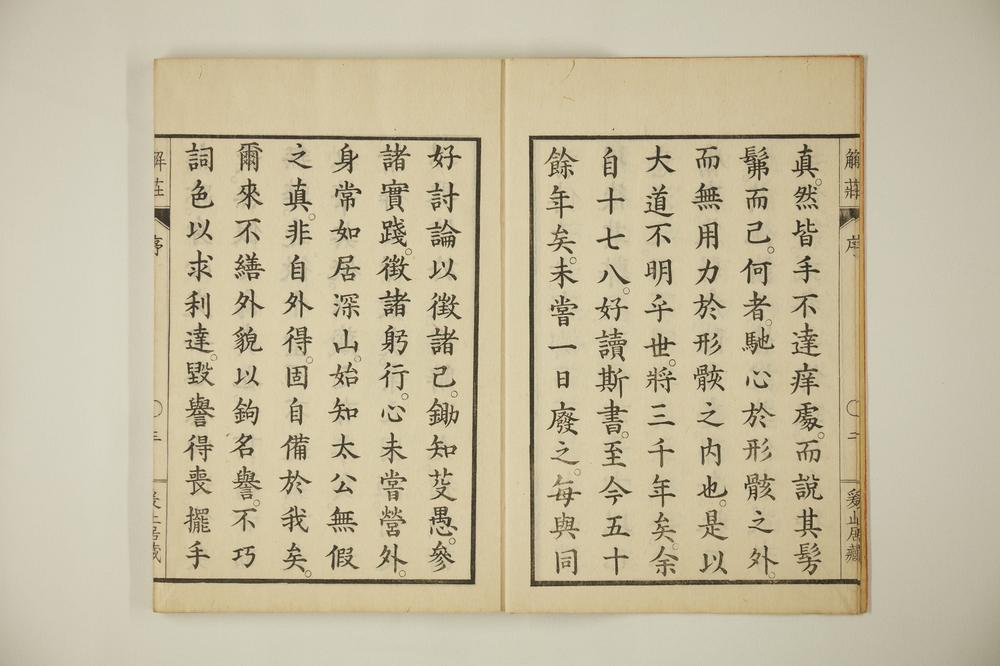 解莊
序
二
真。然皆手不達痒處。而說其髣
髴而己。何者。馳心於形骸之外。
而無用力於形骸之內也。是以
大道不明乎世。將三千年矣。余
自十七八。好讀斯書。至今五十
餘年矣。未嘗一日廢之。每與同
好討論以徵諸己。鋤知芟愚。參
諸實踐。徵諸躬行。心未嘗營外。
身常如居深山。始知太公無假
之真。非自外得。固自備於我矣。
爾來不繕外貌以鉤名譽。不巧
詞色以求利達。毀譽得喪擺手
解莊
序